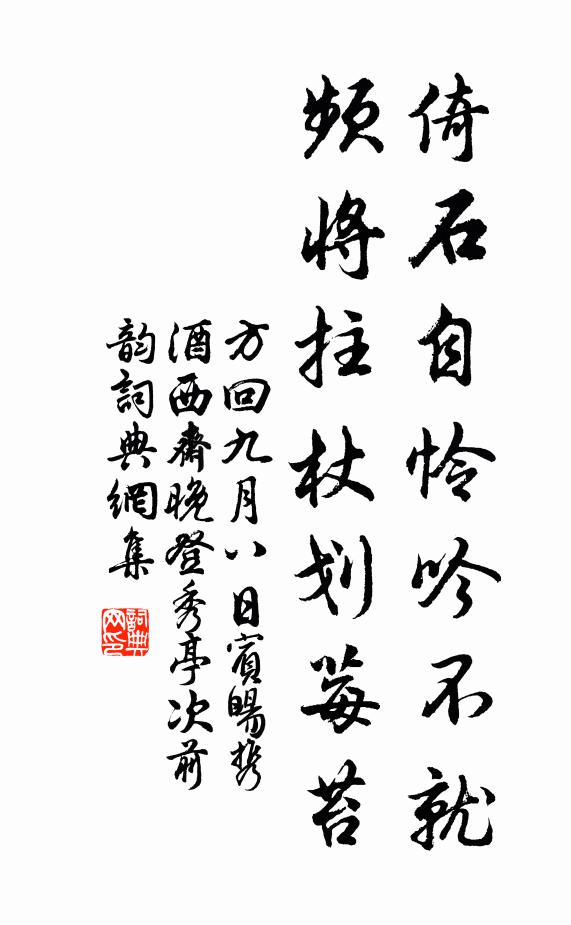 倚石自怜吟不就
频将拄杖划莓苔
方回九月八日宾旸携
酒西斋晚登秀亭次前
韵词典网集
词典网印